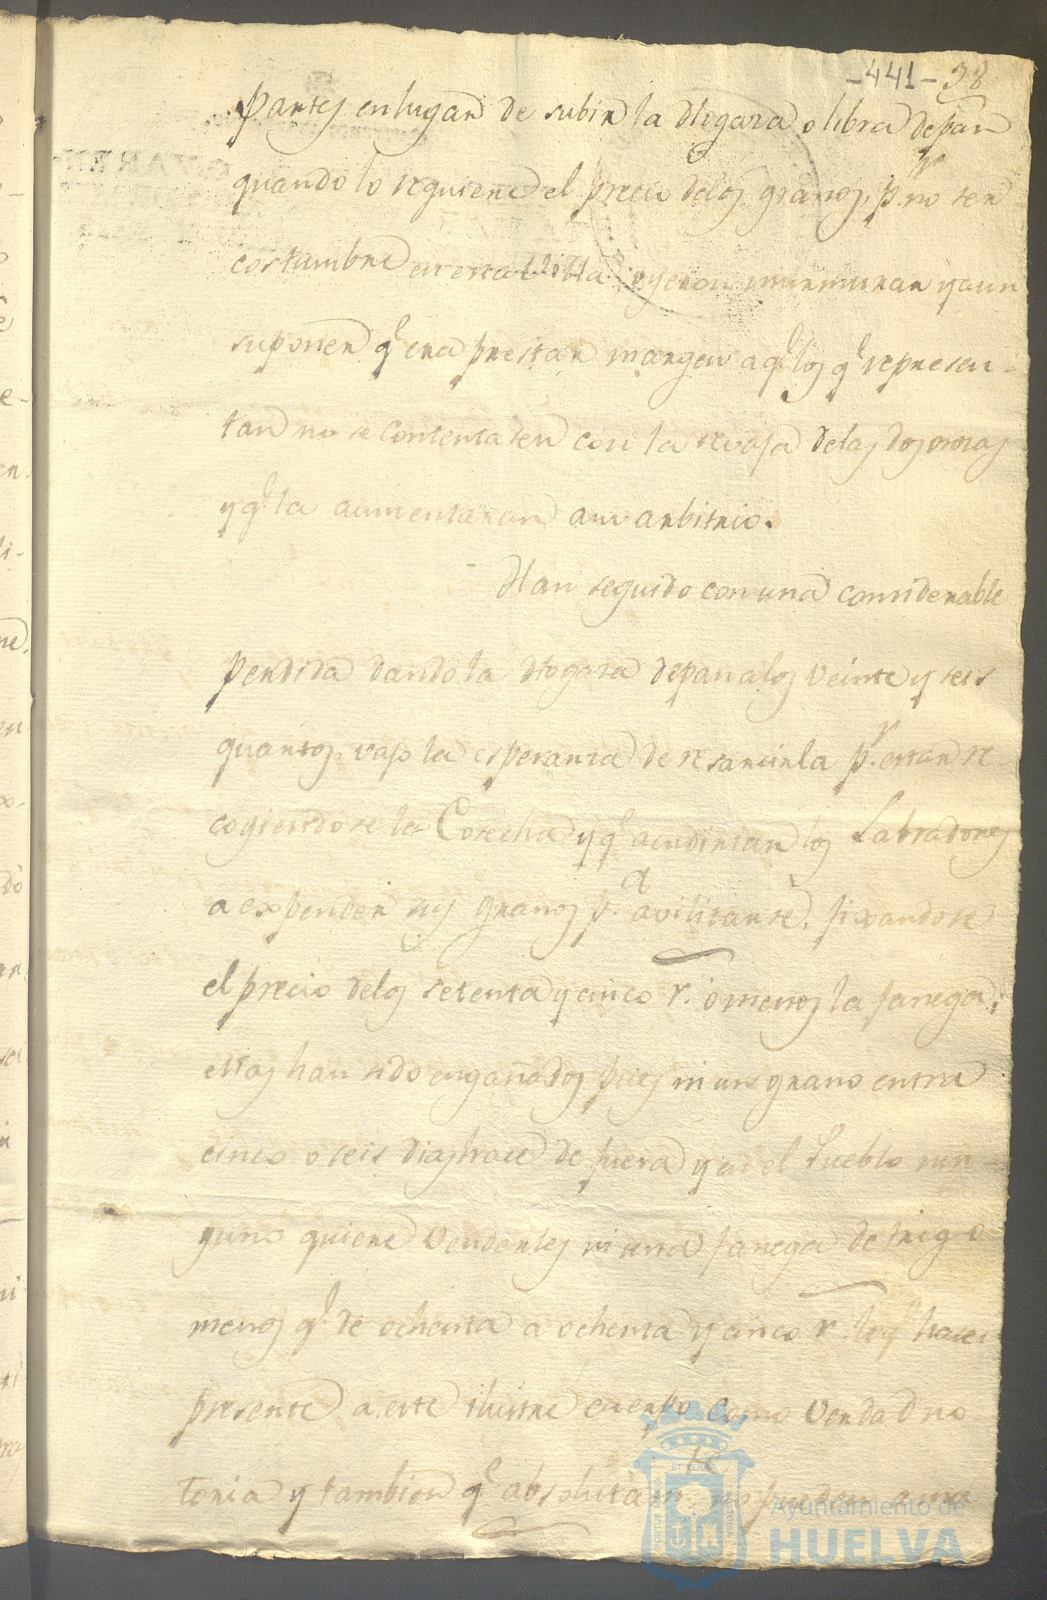 -441- 38
partes en lugar de subir la Hogaza o libra de pan
quando lo requiere el precio delos granos, p.r no ser
costumbre en esta Villa oyeron murmurar y aun
suponer q.e era prestar margen a q.e los q.e represen-
tan no se contentasen con la revaja delas dos onzas
y q.e la aumentaran a su arbitrio.
Han seguido con una considerable
perdida dando la Hogaza de pan a los veinte y seis
quartos, vajo la esperanza de resarcirla p.r estar re-
cogiendose la Cosecha y q.e acudirian los Labradores
a expender sus granos p.a avilitarse, fixandose
el precio delos setenta y cinco r.s o menos la fanega;
estas han sido engañados pues ni un grano entra
cinco o seis dias hace de fuera y en el Pueblo nin-
guno quiere venderles ni una fanega de trigo
menos q.e de ochenta a ochenta y cinco r.s hace
presente a este ilustre cuerpo como verdad no
toria y tambien q.e absolutam.te no pueden
Ayuntamiento de
HUELVA